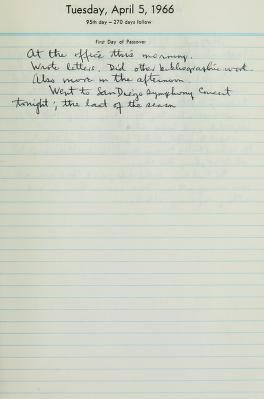 Tuesday, April 5, 1966
95th day — 270 days follow
First Day of Passover
At the office this morning.
Wrote letters. Did other bibliographic work.
Also more in the afternoon
Went to San Diego Symphony Concert
tonight; the last of the season